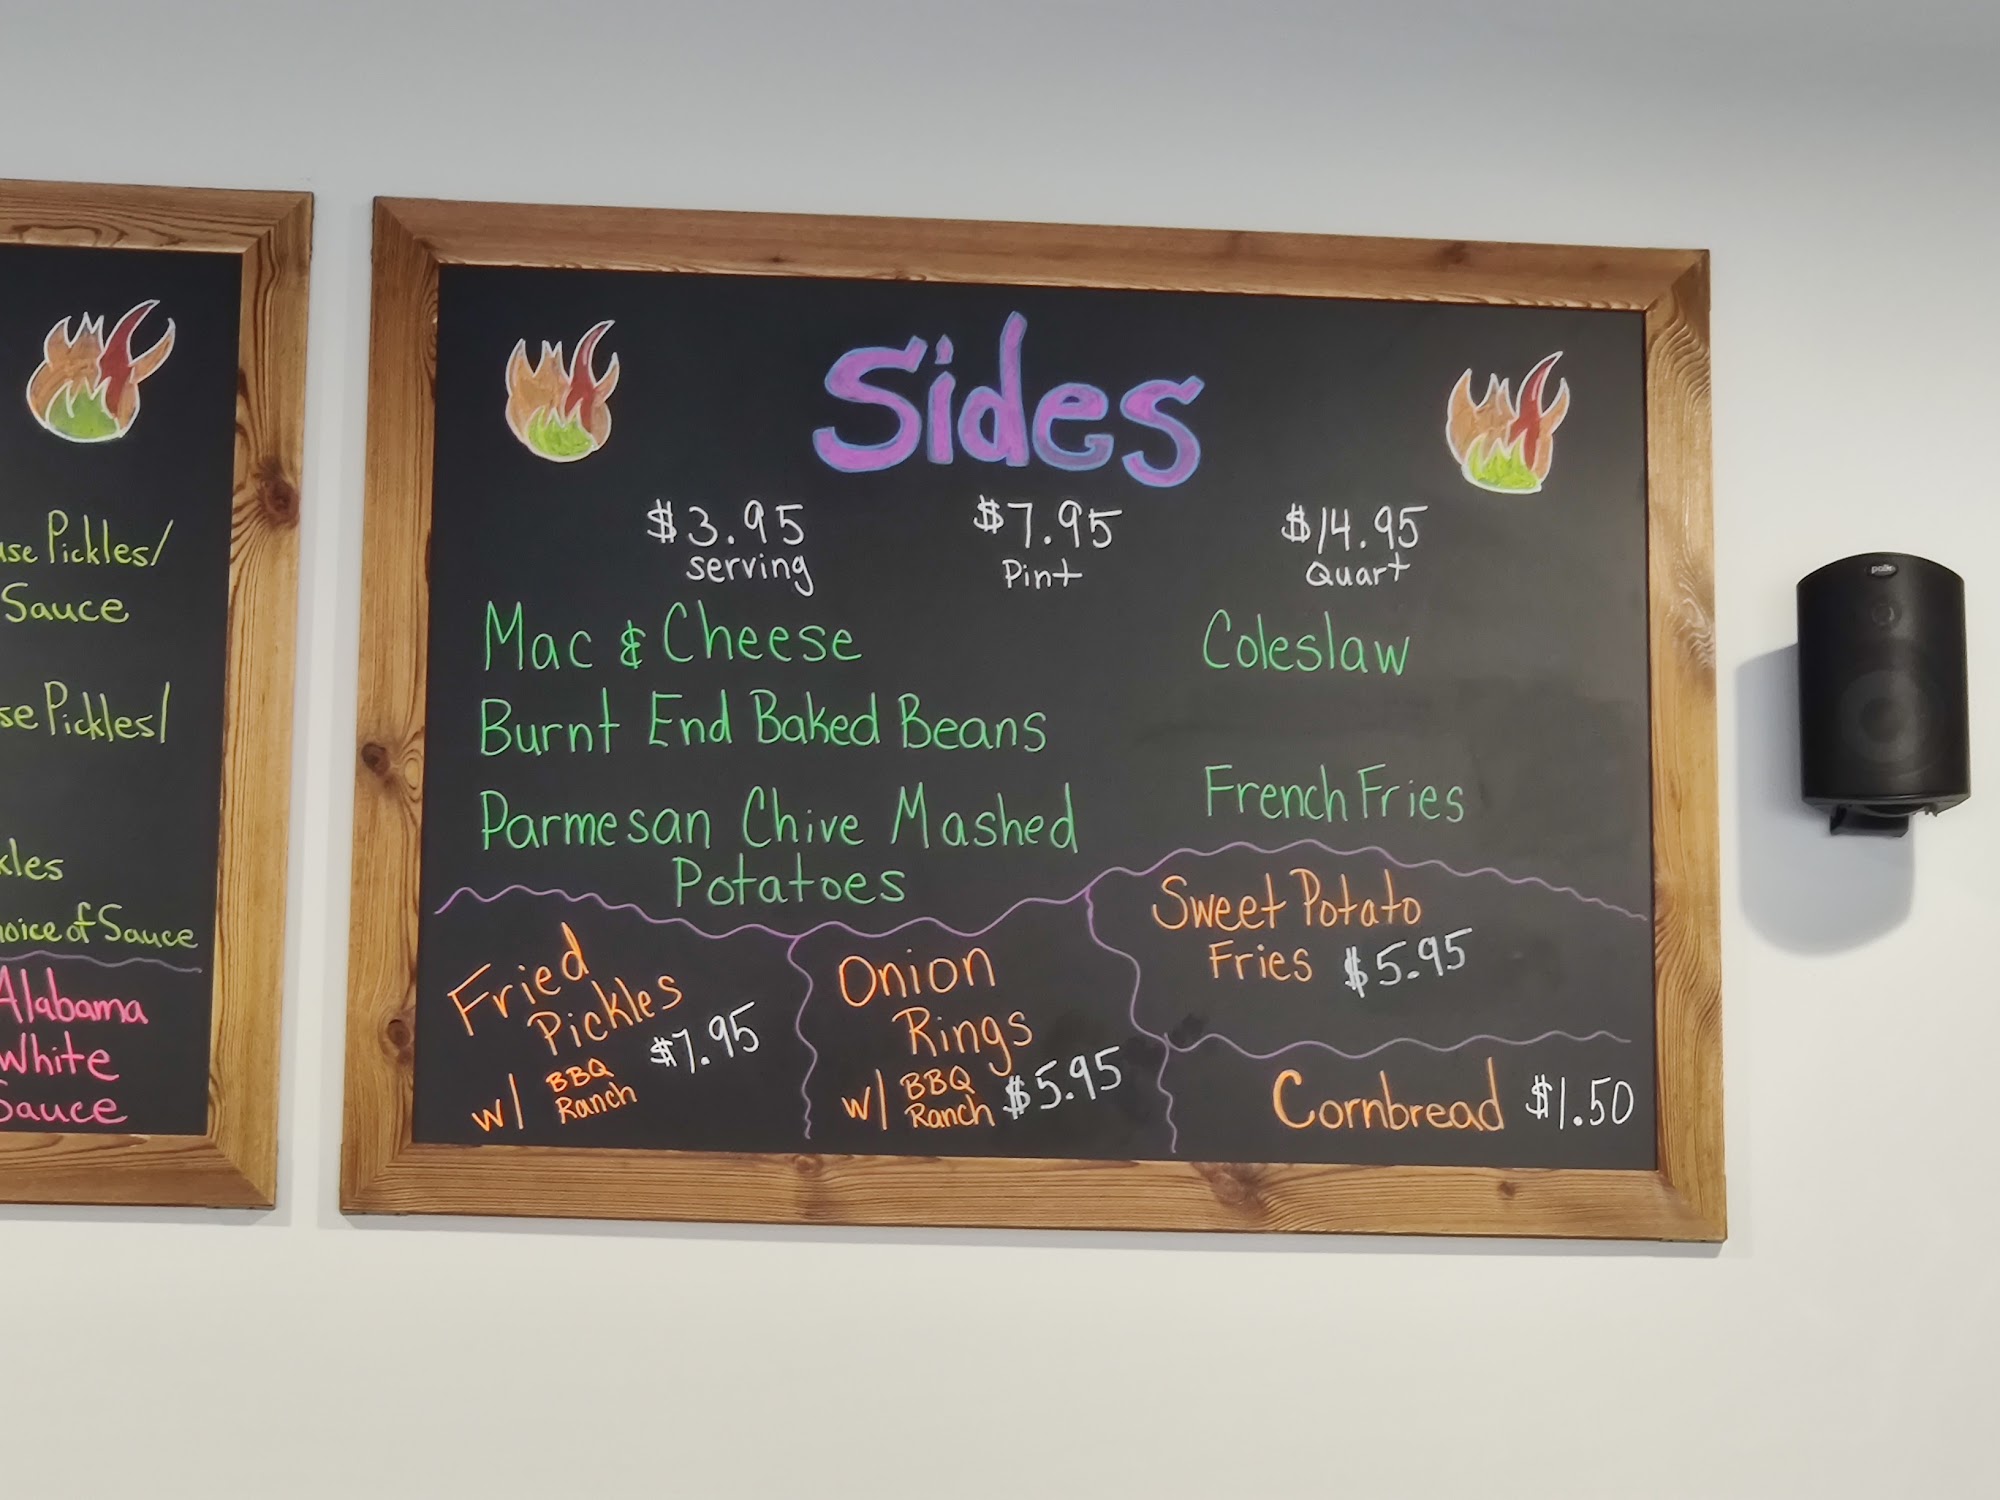 use Pickles/
Sauce
se Pickles/
kles
hoice of Sauce
Alabama
White
Sauce
Sides
$3.95
serving
$7.95
Pint
$14.95
Quart
Mac & Cheese
Burnt End Baked Beans
Parmesan Chive Mashed
Potatoes
Coleslaw
French Fries
Fried
Pickles
w/ BBQ
Ranch
$7.95
Onion
Rings
w/ BBQ
Ranch
$5.95
Sweet Potato
Fries $5.95
Cornbread $1.50
polk